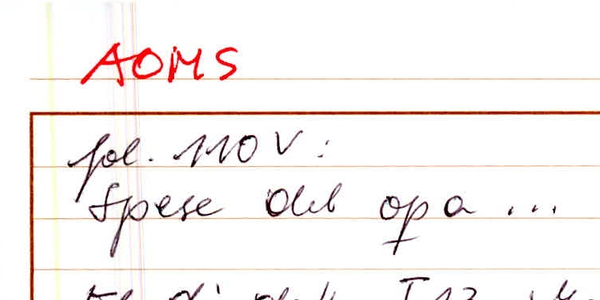 AOMS
fol. 110 V:
Spese del opa ...